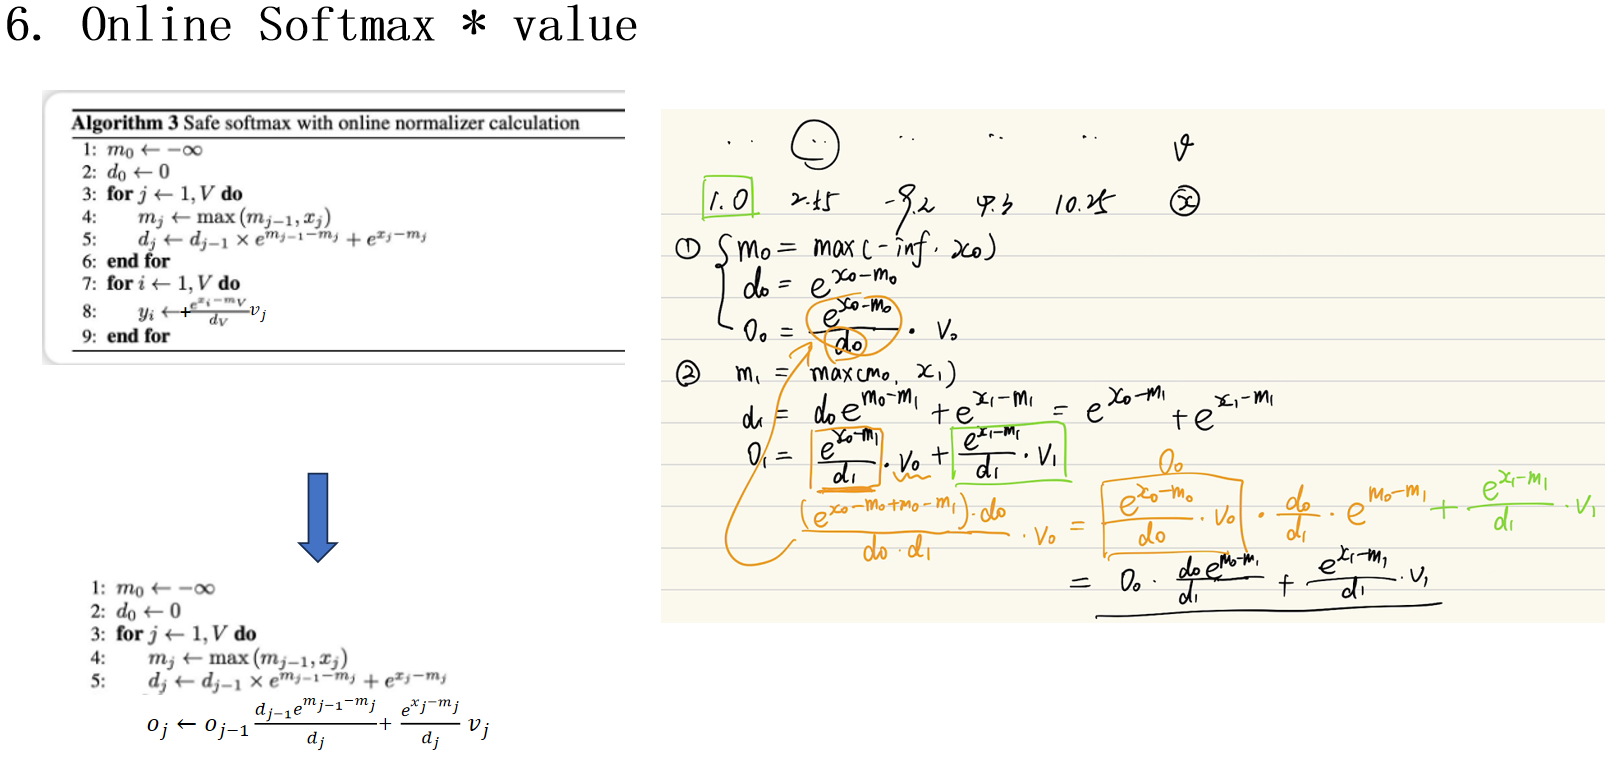 6. Online Softmax * value
Algorithm 3 Safe softmax with online normalizer calculation
1: m₀ ← −∞
2: d₀ ← 0
3: for j ← 1, V do
4: m_j ← max (m_{j−1}, x_j)
5: d_j ← d_{j−1} × e^{m_{j−1}−m_j} + e^{x_j−m_j}
6: end for
7: for i ← 1, V do
8: y_i ←+ e^{x_i−m_V} / d_V v_j
9: end for
1: m₀ ← −∞
2: d₀ ← 0
3: for j ← 1, V do
4: m_j ← max (m_{j−1}, x_j)
5: d_j ← d_{j−1} × e^{m_{j−1}−m_j} + e^{x_j−m_j}
o_j ← o_{j−1} d_{j−1}e^{m_{j−1}−m_j} / d_j + e^{x_j−m_j} / d_j v_j
v
1.0 -9.2 4.3 10.25 x
① m₀ = max(-inf, x₀)
d₀ = e^{x₀−m₀}
O₀ = e^{x₀−m₀} / d₀ · V₀
② m₁ = max(m₀, x₁)
d₁ = d₀e^{m₀−m₁} + e^{x₁−m₁} = e^{x₀−m₁} + e^{x₁−m₁}
O₁ = e^{x₀−m₁} / d₁ · V₀ + e^{x₁−m₁} / d₁ · V₁
O₀
(e^{x₀−m₀+m₀−m₁})·d₀ / d₀·d₁ · V₀ = e^{x₀−m₀} / d₀ · V₀ · d₀ / d₁ · e^{m₀−m₁} + e^{x₁−m₁} / d₁ · V₁
= O₀ · d₀e^{m₀−m₁} / d₁ + e^{x₁−m₁} / d₁ · V₁